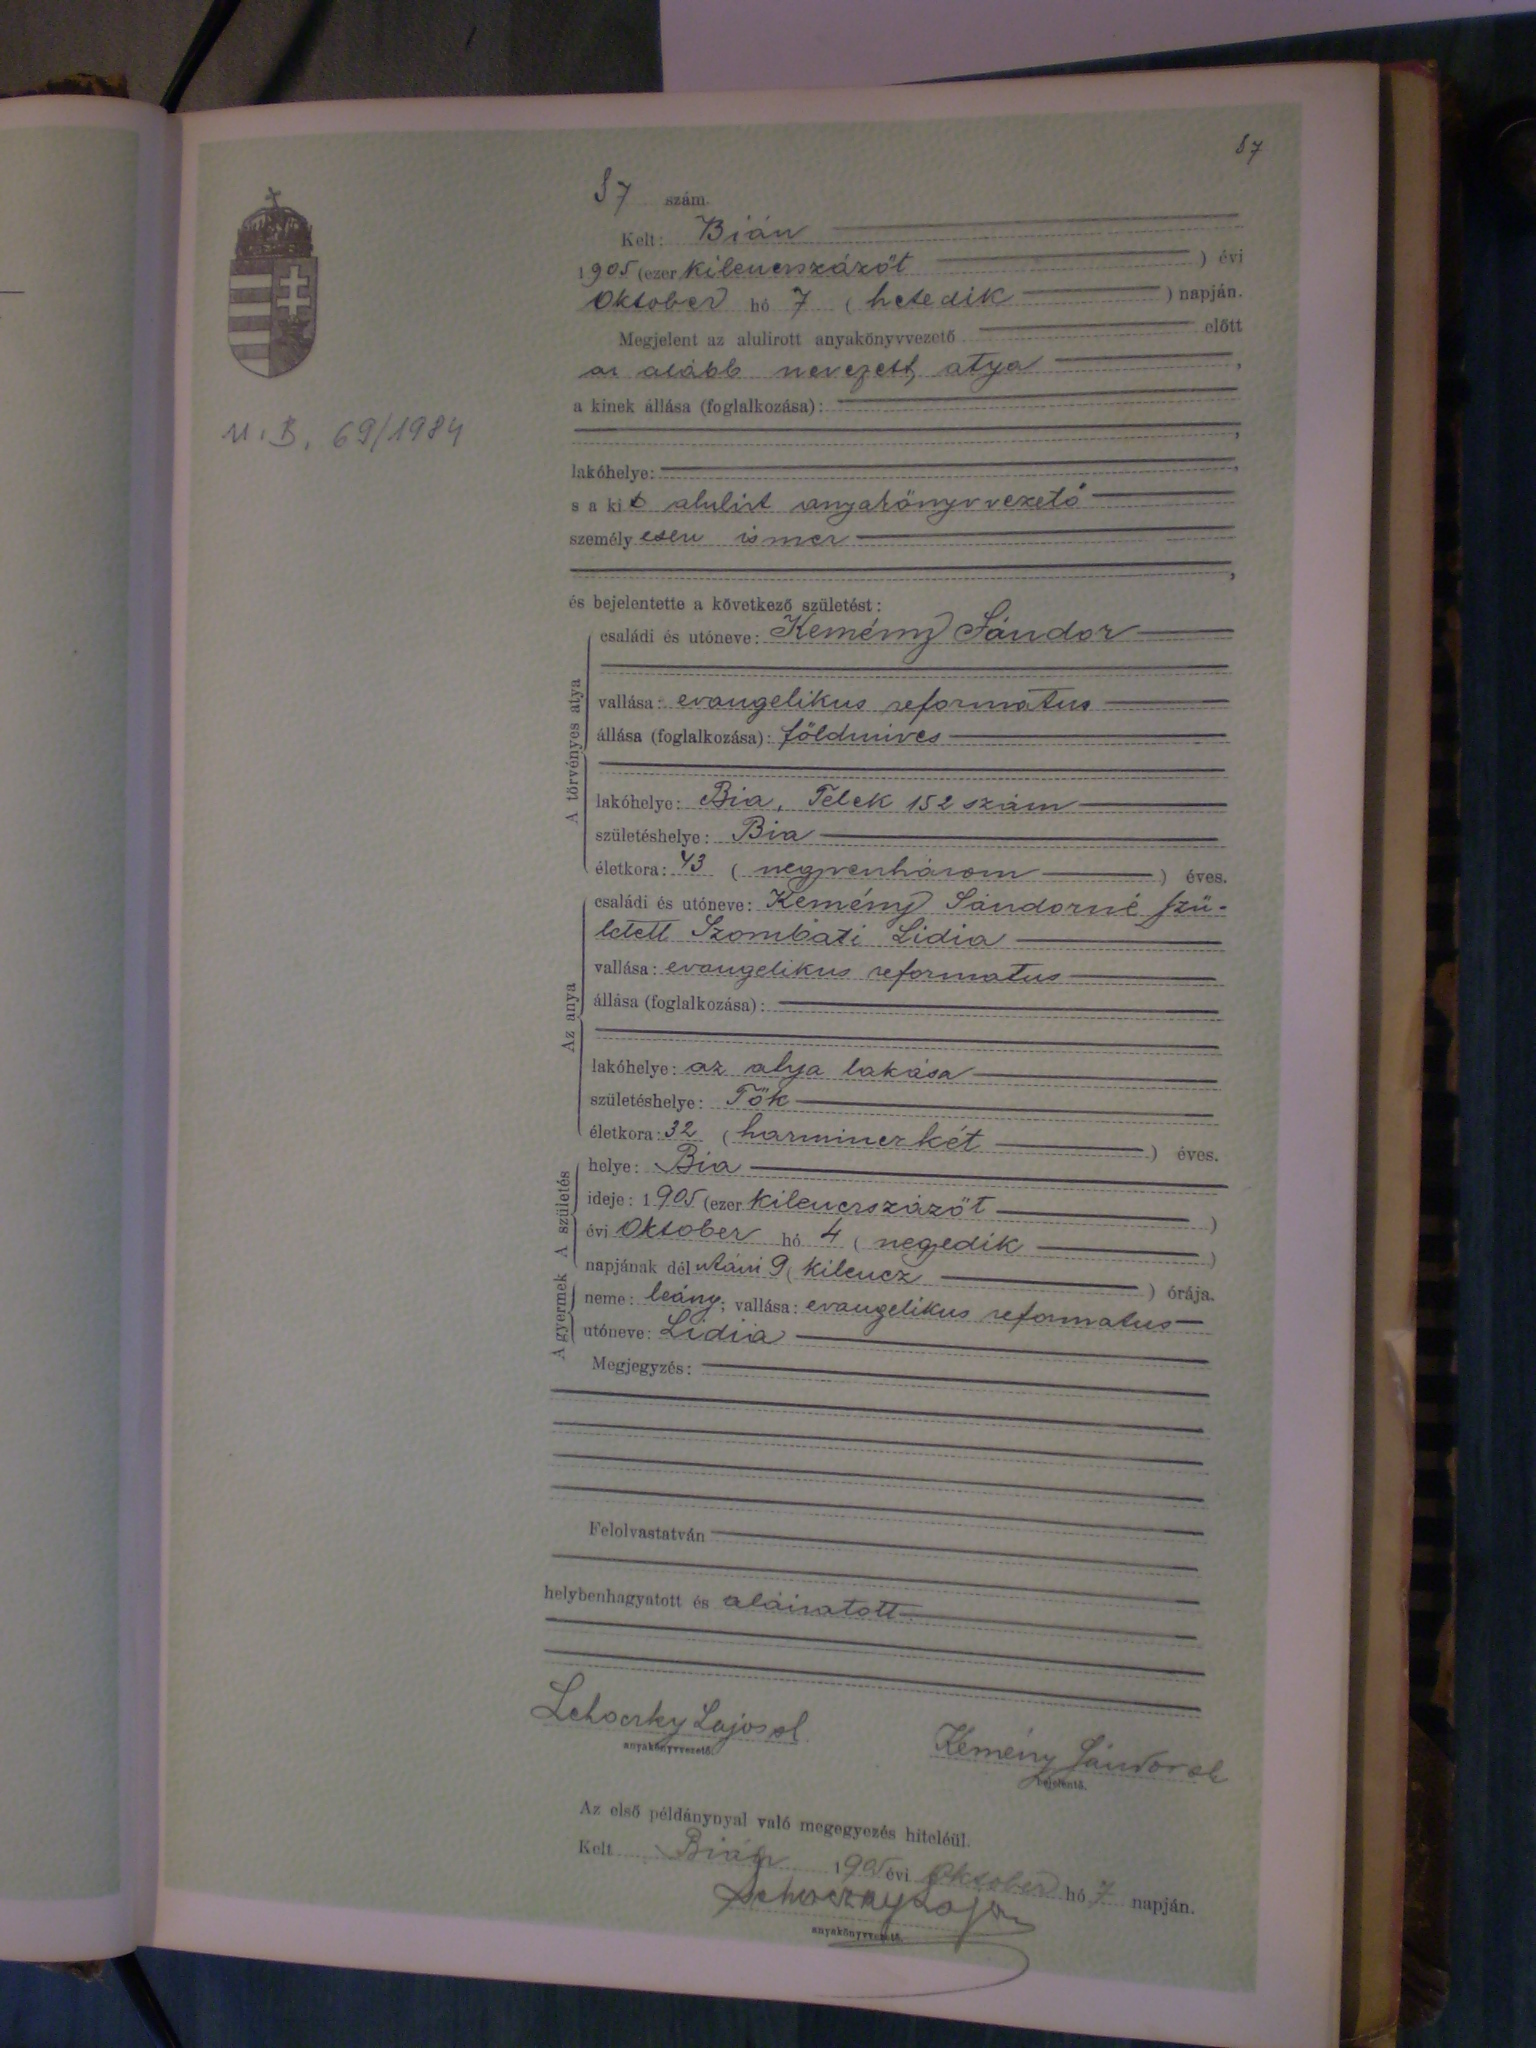 87
87 szám.
Kelt: Bián
1905 (ezer kilenczszázöt ) évi
Oktober hó 7 ( hetedik ) napján.
Megjelent az alulirott anyakönyvvezető előtt
az alább nevezett atya ,
a kinek állása (foglalkozása):
,
lakóhelye: ,
s a kit alulirt anyakönyvvezető
személyesen ismer
,
és bejelentette a következő születést:
A törvényes atya
családi és utóneve: Kemény Sándor
vallása: evangelikus reformatus
állása (foglalkozása): földmives
lakóhelye: Bia, Telek 152 szám
születéshelye: Bia
életkora: 43 ( negyvenhárom ) éves.
Az anya
családi és utóneve: Kemény Sándorné szü-
letett Szombati Lidia
vallása: evangelikus reformatus
állása (foglalkozása):
lakóhelye: az atya lakása
születéshelye: Tök
életkora: 32 ( harminczkét ) éves.
A születés
helye: Bia
ideje: 1905 (ezer kilenczszázöt )
évi Oktober hó 4 ( negyedik )
napjának dél utáni 9 ( kilencz ) órája.
A gyermek
neme: leány; vallása: evangelikus reformatus
utóneve: Lidia
Megjegyzés:
Felolvastatván
helybenhagyatott és aláiratott.
Lehoczky Lajos
anyakönyvvezető.
Kemény Sándor
bejelentő.
Az első példánynyal való megegyezés hiteléül.
Kelt Bián 1905 évi Oktober hó 7 napján.
Lehoczky Lajos
anyakönyvvezető.
U.B. 69/1984